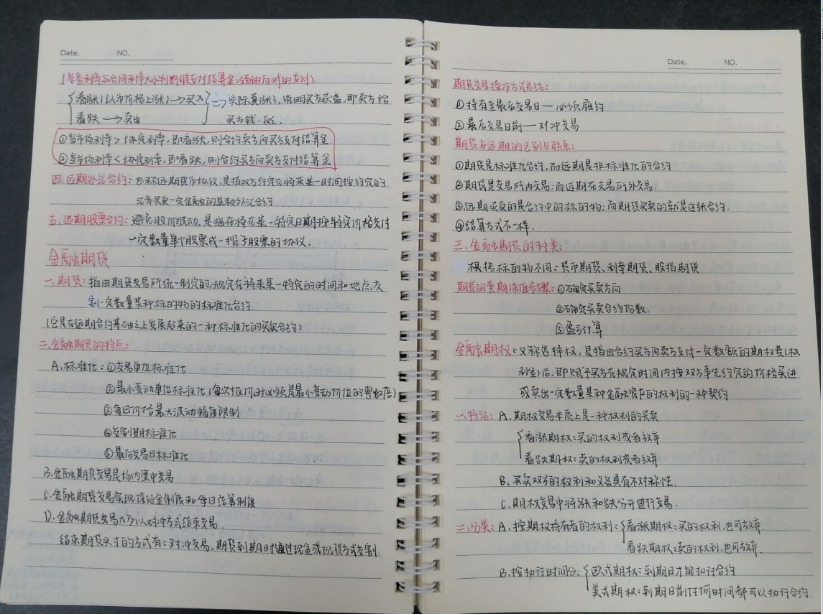 Date. NO.
(当市场利率与合同利率大小判断谁支付结算金,
看涨(认为价格上涨)→买入
看跌→卖出
实际真涨了,说明买方获益,即卖方给
买方钱
①当市场利率>协定利率,即看涨,则合约卖方向买方支付结算金
②当市场利率<协定利率,即看跌,则合约买方向卖方支付结算金
四、远期外汇合约:又称远期货币协议,是指双方约定在将来某一时间按约定的
汇率买卖一定金额的某种外汇合约
五、远期股票合约:是指在将来某一特定日期按特定价格交付
一定数量单个股票或一揽子股票的协议。
金融期货
一、期货:指由期货交易所统一制定的,规定在将来某一特定的时间和地点交
割一定数量某种标的物的标准化合约
(它是在远期合约基础之上发展起来的一种标准化的买卖合约)
二、金融期货的特点:
A、标准化:①交易单位标准化
②最小变动单位标准化(每次报价时必须是最小变动价位的整数倍)
③每日价格最大波动幅度限制
④交割期标准化
⑤最后交易日标准化
B、金融期货交易是场内集中交易
C、金融期货交易实施保证金制度和每日结算制度
D、金融期货交易大多以对冲方式结束交易
结束期货头寸的方式有:对冲交易、期货到期日时通过现金或现货方式交割
Date. NO.
期货交易操作方式总结:
①持有至最后交易日—100%履约
②最后交易日前—对冲交易
期货与远期的区别与联系:
①期货是标准化合约,而远期是非标准化的合约
②期货是交易所内交易,而远期在交易所外交易
③远期买卖的是合约中的标的物;而期货买卖的就是这纸合约
④结算方式不一样.
三、金融期货的种类:
根据标的物不同:货币期货、利率期货、股指期货
①确定买卖方向
②确定买卖合约份数.
③盈亏计算
金融期权:又称选择权,是指由合约买方向卖方支付一定数额的期权费(权
利金)后,即赋予买方在规定时间内按双方事先约定的价格买进
或卖出一定数量某种金融资产的权利的一种契约
一、特征:A、期权交易本质上是一种权利的买卖
看涨期权:买的权利或者放弃
看跌期权:卖的权利或者放弃
B、买卖双方的权利和义务具有不对称性.
C、期权交易中将涨和跌分开进行交易.
二、分类:A、按期权持有者的权利:看涨期权:买的权利,也可放弃.
看跌期权:卖的权利,也可放弃.
B、按执行时间分:欧式期权:到期日才能执行合约
美式期权:到期日前任何时间都可以执行合约